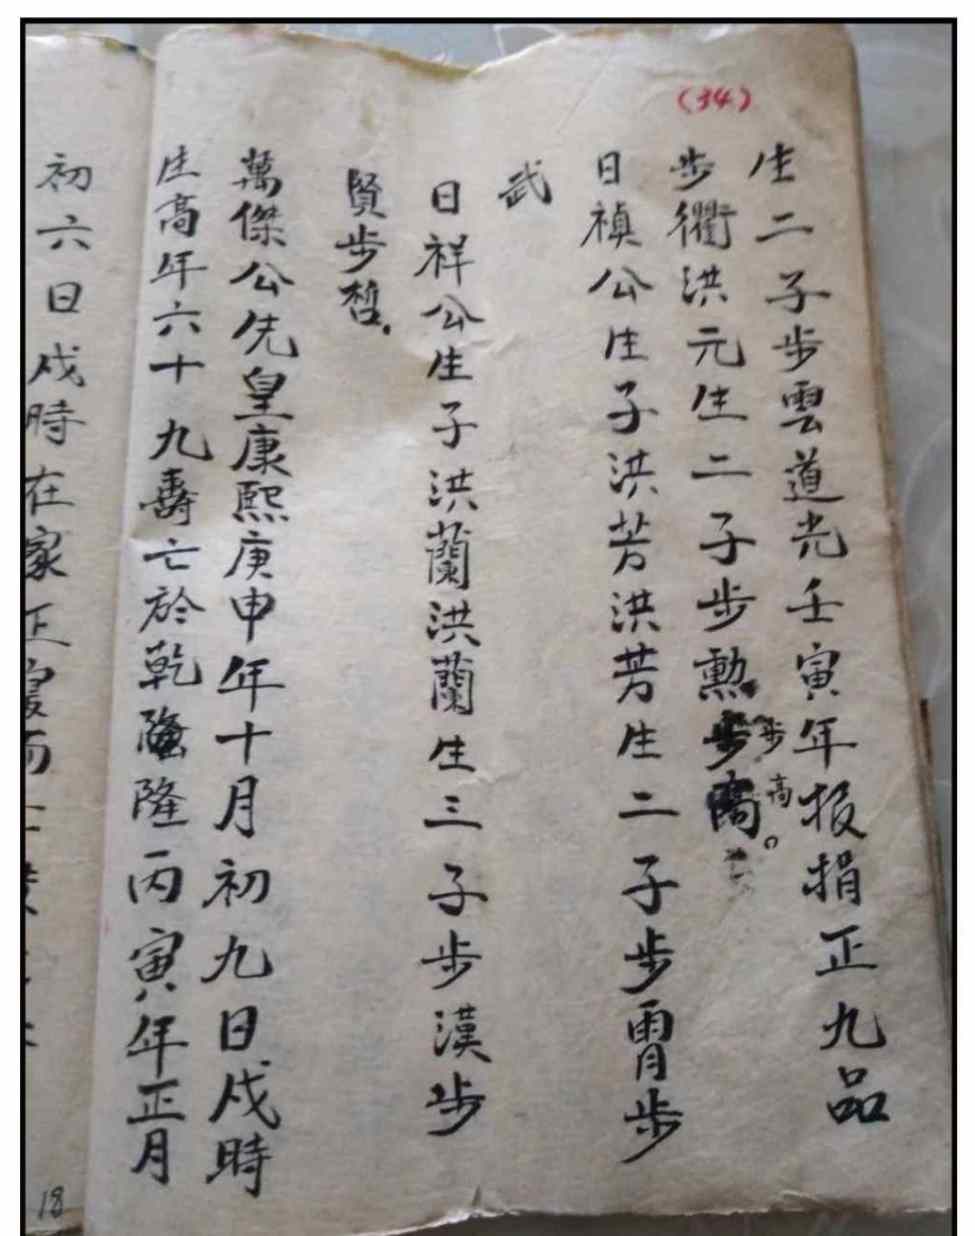 (34)
生二子步雲道光壬寅年报捐正九品
步衢洪元生二子步勲步高。
步高
日禎公生子洪芳洪芳生二子步胄步
武
日祥公生子洪蘭洪蘭生三子步漢步
賢步哲。
萬傑公先皇康熙庚申年十月初九日戍時
生高年六十九壽亡於乾隆隆丙寅年正月
初六日戍時在家正寢而
18